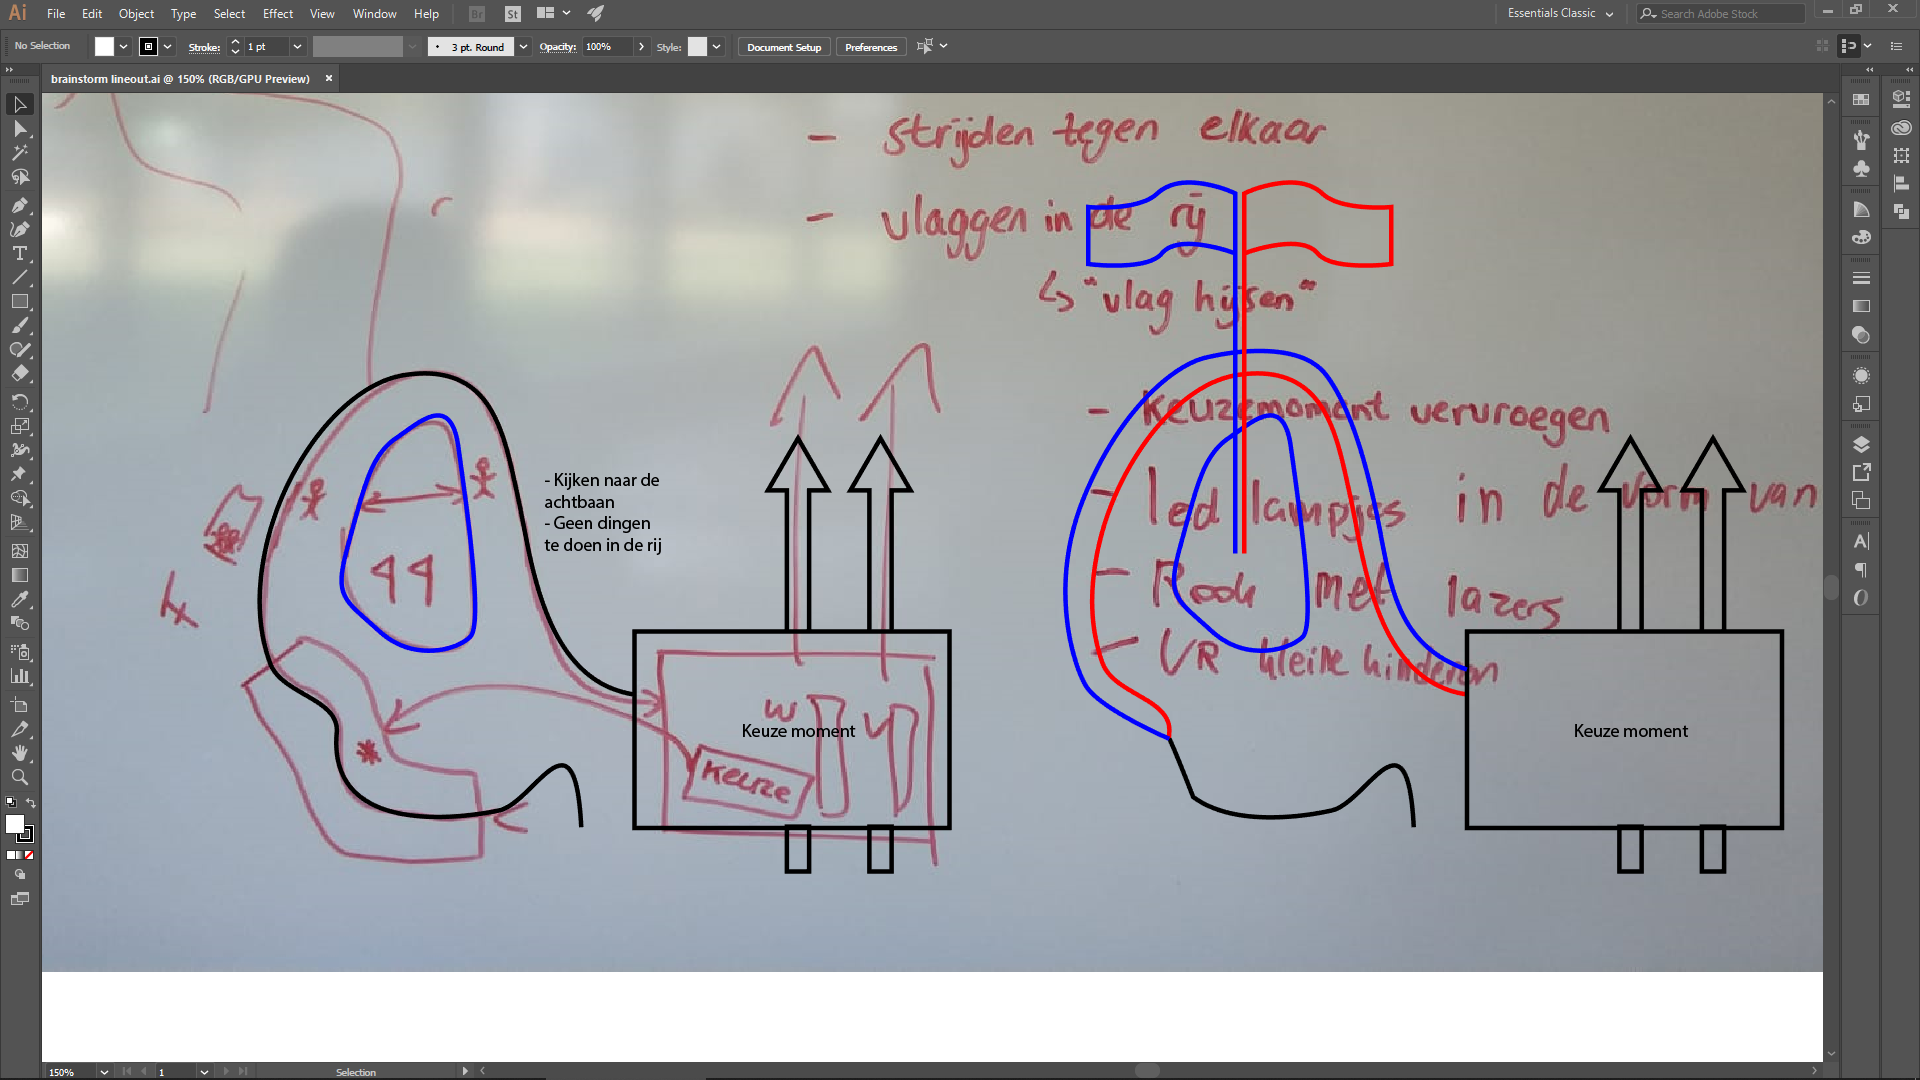 Ai File Edit Object Type Select Effect View Window Help Br St Essentials Classic Search Adobe Stock
No Selection Stroke: 1 pt 3 pt. Round Opacity: 100% Style: Document Setup Preferences
brainstorm lineout.ai @ 150% (RGB/GPU Preview) ×
- strijden tegen elkaar
- vlaggen in de rij
↳ "vlag hijsen"
- Keuzemoment vervroegen
- led lampjes in de vorm van
- Rook met lazers
- VR kleine kinderen
- Kijken naar de
achtbaan
- Geen dingen
te doen in de rij
W
V
Keuze moment
Keuze
Keuze moment
150% 1 Selection